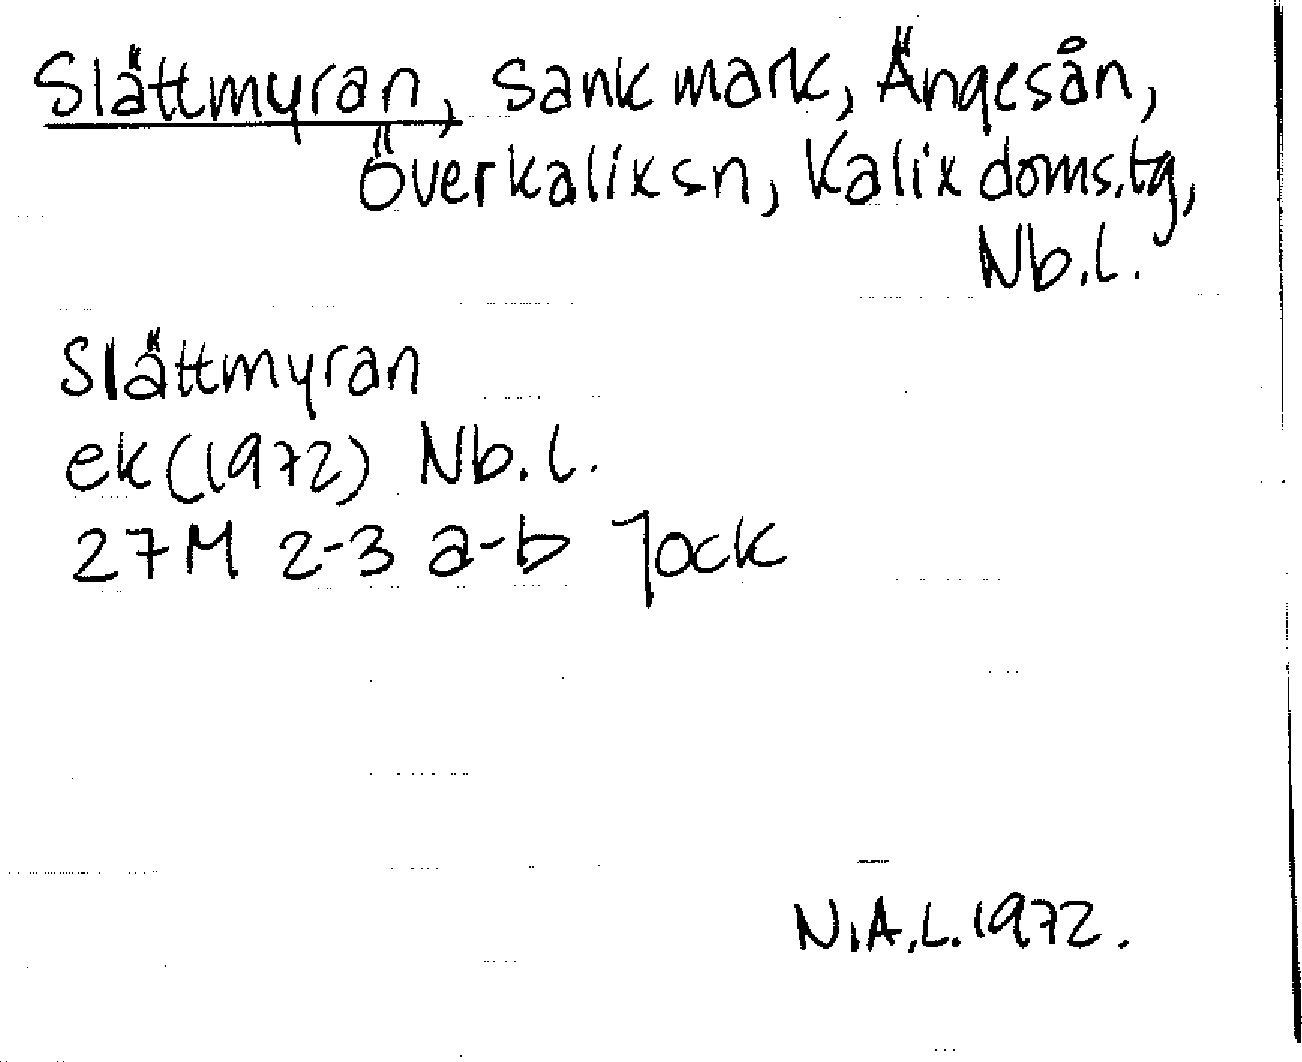 Slättmyran, Sank mark, Ängesån,
Överkalix sn, Kalix doms.tg,
Nb.l.
Slättmyran
ek (1972) Nb.l.
27M 2-3 a-b Jock
N.A.L. 1972.